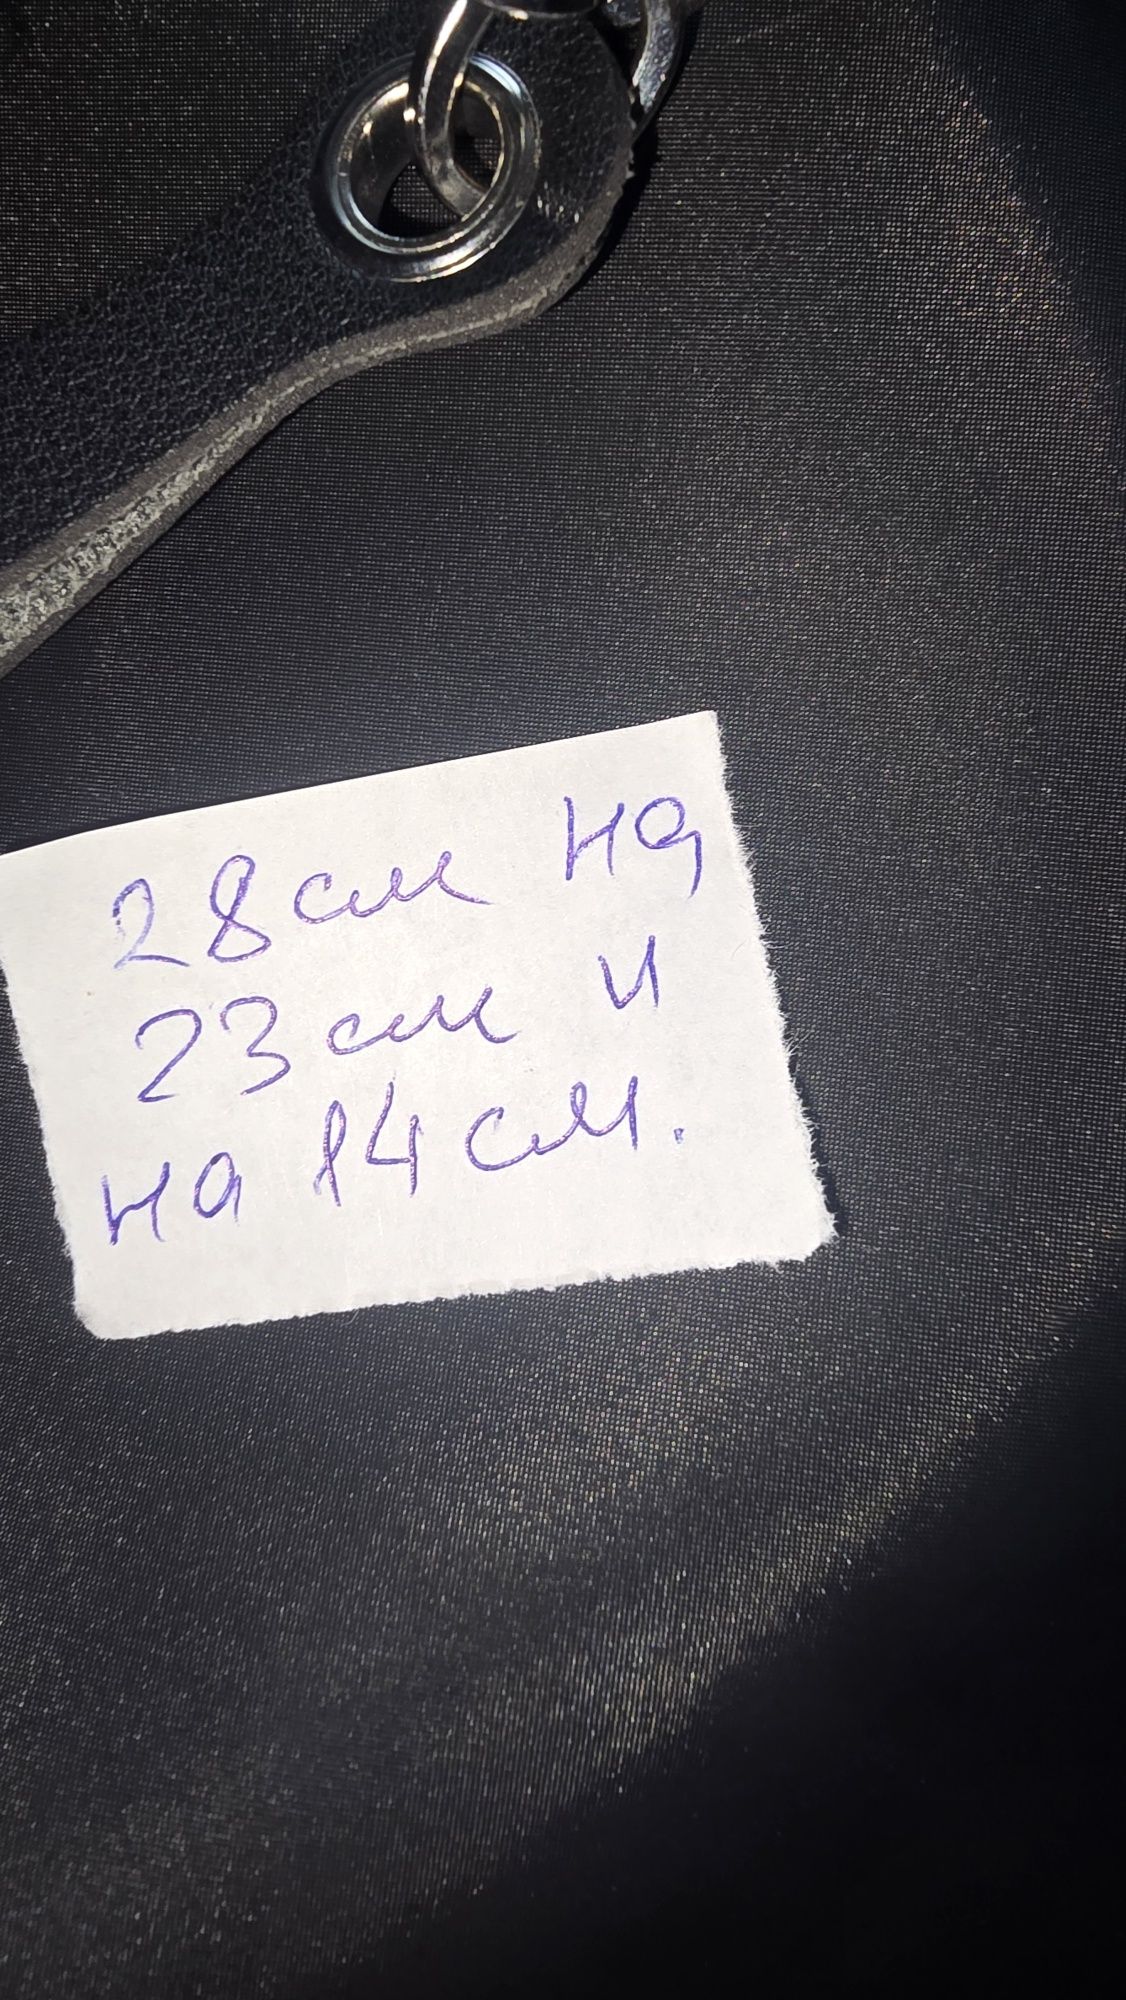 28 см на
23 см и
на 14 см.